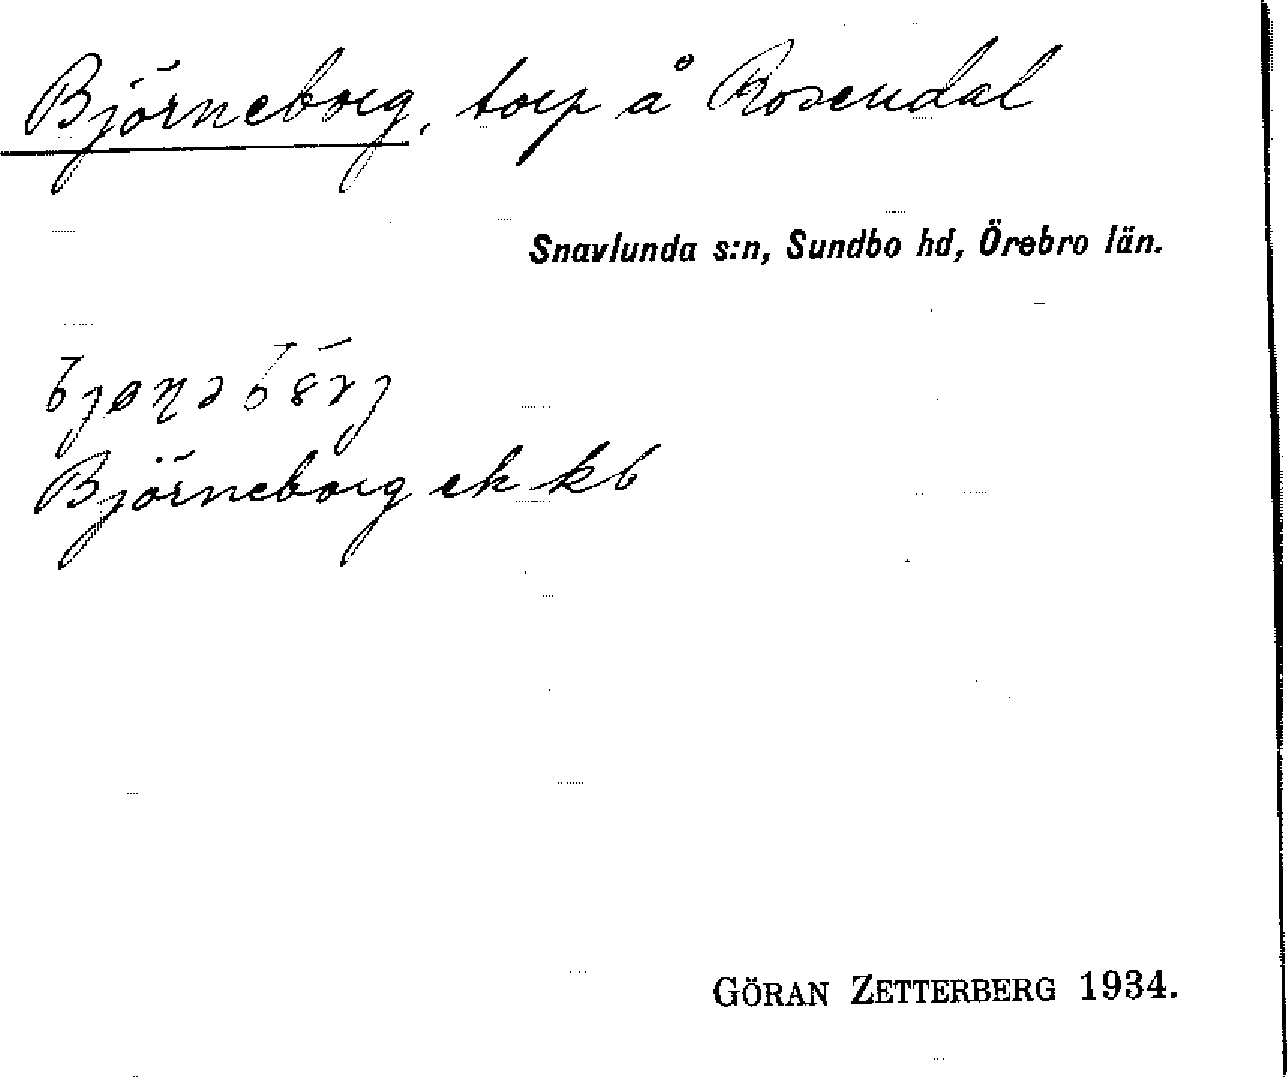 Björneborg, torp å Rosendal
Snavlunda s:n, Sundbo hd, Örebro län.
Björneborg ek kb
GÖRAN ZETTERBERG 1934.